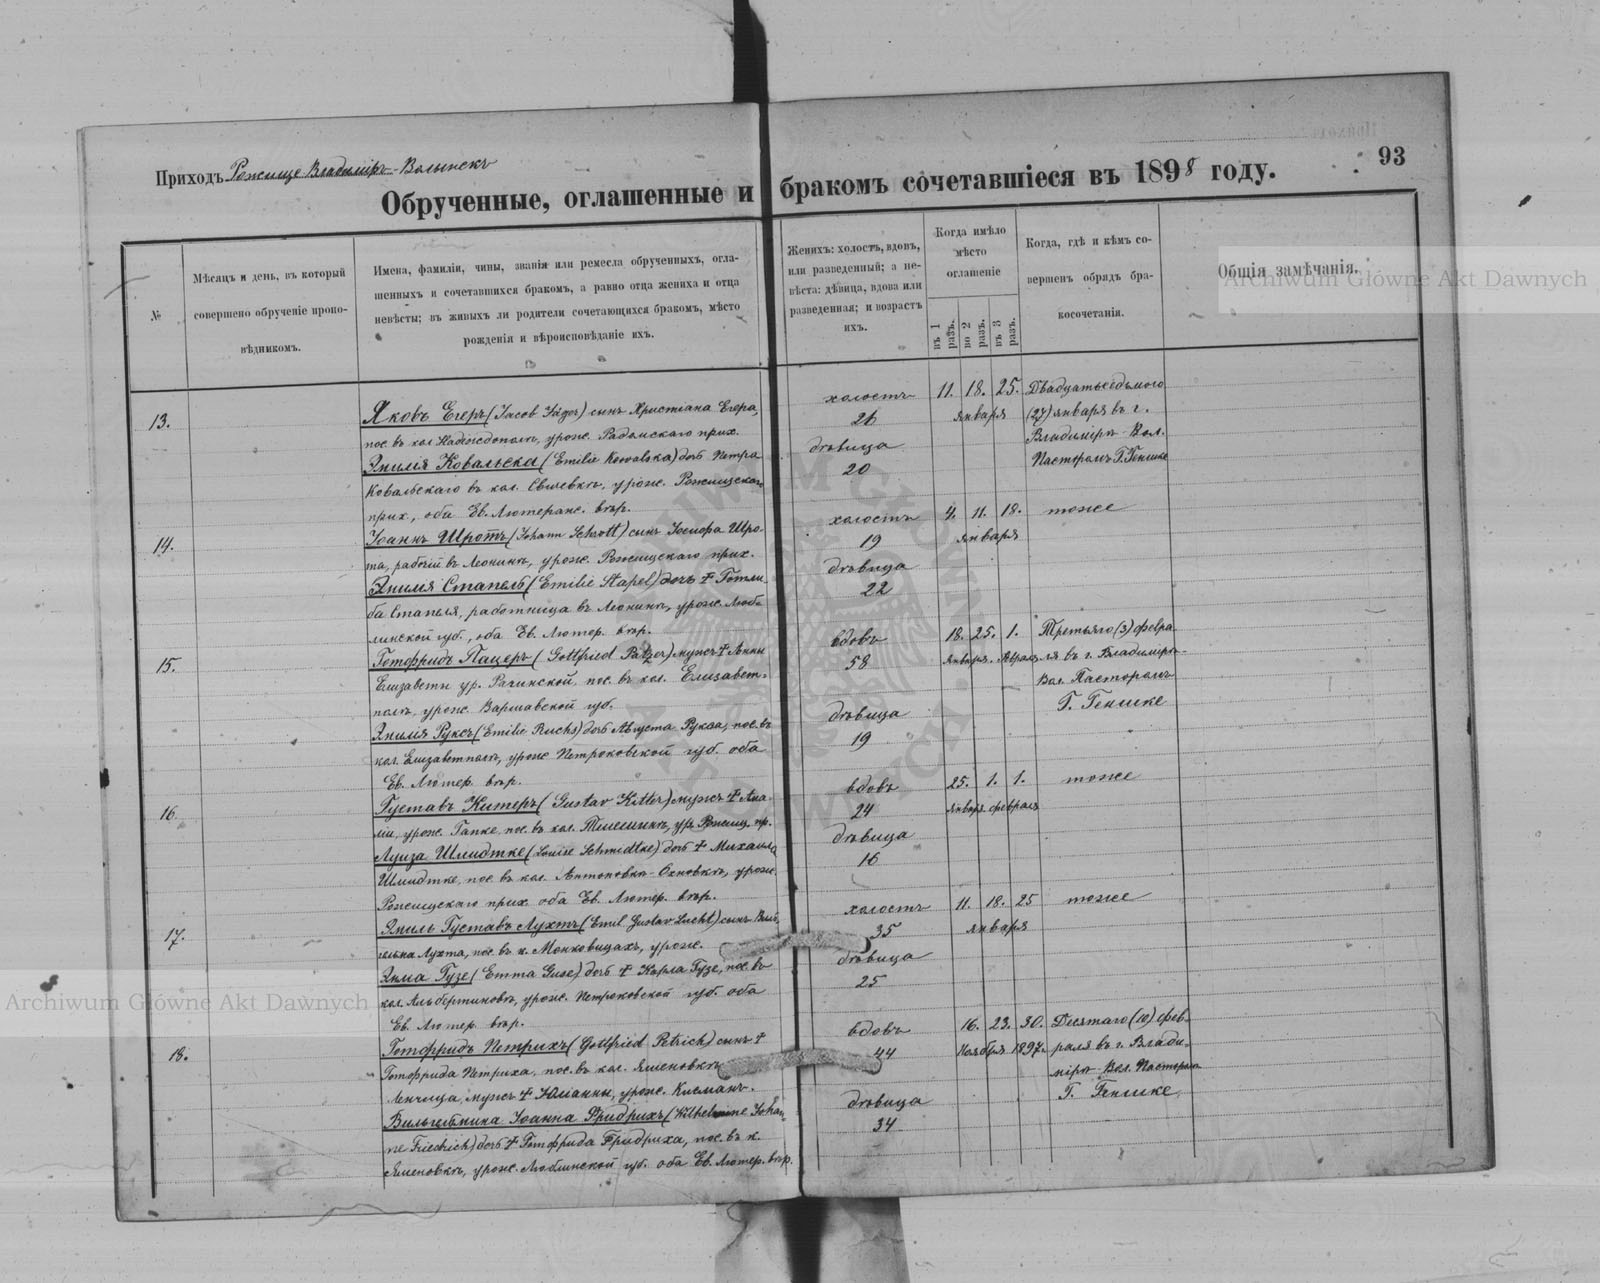 93
Приходъ Рожище Владиміръ-Волынскъ
Обрученные, оглашенные и бракомъ сочетавшіеся въ 1898 году.
№
Мѣсяцъ и день, въ который
совершено обрученіе пропо-
вѣдникомъ.
Имена, фамиліи, чины, званія или ремесла обрученныхъ, огла-
шенныхъ и сочетавшихся бракомъ, а равно отца жениха и отца
невѣсты; въ живыхъ ли родители сочетающихся бракомъ, мѣсто
рожденія и вѣроисповѣданіе ихъ.
Женихъ: холостъ, вдовъ,
или разведенный; а не-
вѣста: дѣвица, вдова или
разведенная; и возрастъ
ихъ.
Когда имѣло
мѣсто
оглашеніе
въ 1 разъ.
во 2 разъ.
въ 3 разъ.
Когда, гдѣ и кѣмъ со-
вершенъ обрядъ бра-
косочетанія.
Общія замѣчанія.
Archiwum Główne Akt Dawnych
13.
Яковъ Егеръ (Jacob Jäger) сынъ Христіана Егера,
пос. въ кол. Надеждополь, урож. Радомскаго прих.
Эмилія Ковальска (Emilie Kowalska) дочь Петра
Ковальскаго въ кол. урож. Рожищскаго
прих., оба Ев. Лютеранс. вѣр.
холостъ
26
дѣвица
20
11. 18. 25.
января
Двадцатьседьмого
(27) января въ г.
Владиміръ-Вол.
Пасторомъ Г. Геншке
14.
Іоаннъ Шротъ (Johann Schrott) сынъ Іосифа Шро-
та, рабочій въ Леонинѣ, урож. Рожищскаго прих.
Эмилія Стапель (Emilie Stapel) дочь † Готли-
ба Стапеля, работница въ Леонинѣ, урож. Люб-
линской губ., оба Ев. Лютер. вѣр.
холостъ
19
дѣвица
22
4. 11. 18.
января
тоже
15.
Готфридъ Пацеръ (Gottfried Patzer) мужъ † Анны
Елизаветы ур. Рачинской, пос. въ кол. Елизавет-
полѣ, урож. Варшавской губ.
Эмилія Руксъ (Emilie Ruchs) дочь Августа Рукса, пос. въ
кол. Елизаветполѣ, урож. Петроковской губ. оба
Ев. Лютер. вѣр.
вдовъ
58
дѣвица
19
18. 25. 1.
января. февраля
Третьяго (3) февра-
ля въ г. Владиміръ-
Вол. Пасторомъ
Г. Геншке
16.
Густавъ Китеръ (Gustav Kitter) мужъ † Ама-
ліи, урож. Гапке, пос. въ кол. ур. Рожищ. пр.
Луиза Шмидтке (Louise Schmidtke) дочь † Михаила
Шмидтке, пос. въ кол. Антоновкѣ-Охновкѣ, урож.
Рожищскаго прих. оба Ев. Лютер. вѣр.
вдовъ
24
дѣвица
16
25. 1. 1.
января февраля
тоже
17.
Эмиль Густавъ Лухтъ (Emil Gustav Lucht) сынъ Виль-
гельма Лухта, пос. въ к. Монковицахъ, урож.
Эмма Гузе (Emma Guse) дочь † Карла Гузе, пос. въ
кол. Альбертиновкѣ, урож. Петроковской губ. оба
Ев. Лютер. вѣр.
холостъ
35
дѣвица
25
11. 18. 25
января
тоже
18.
Готфридъ Петрихъ (Gottfried Petrich) сынъ †
Готфрида Петриха, пос. въ кол. Яменовкѣ
мужъ † Юліанны, урож. Кисманъ.
Вильгельмина Іоанна Фридрихъ (Wilhelmine Johan-
ne Friedrich) дочь † Готфрида Фридриха, пос. въ к.
Яменовкѣ, урож. Люблинской губ. оба Ев. Лютер. вѣр.
вдовъ
44
дѣвица
34
16. 23. 30.
Ноября 1897г.
Десятаго (10) фев-
раля въ г. Влади-
міръ-Вол. Пасторомъ
Г. Геншке
Archiwum Główne Akt Dawnych
ARCHIWUM GŁÓWNE AKT DAWNYCH